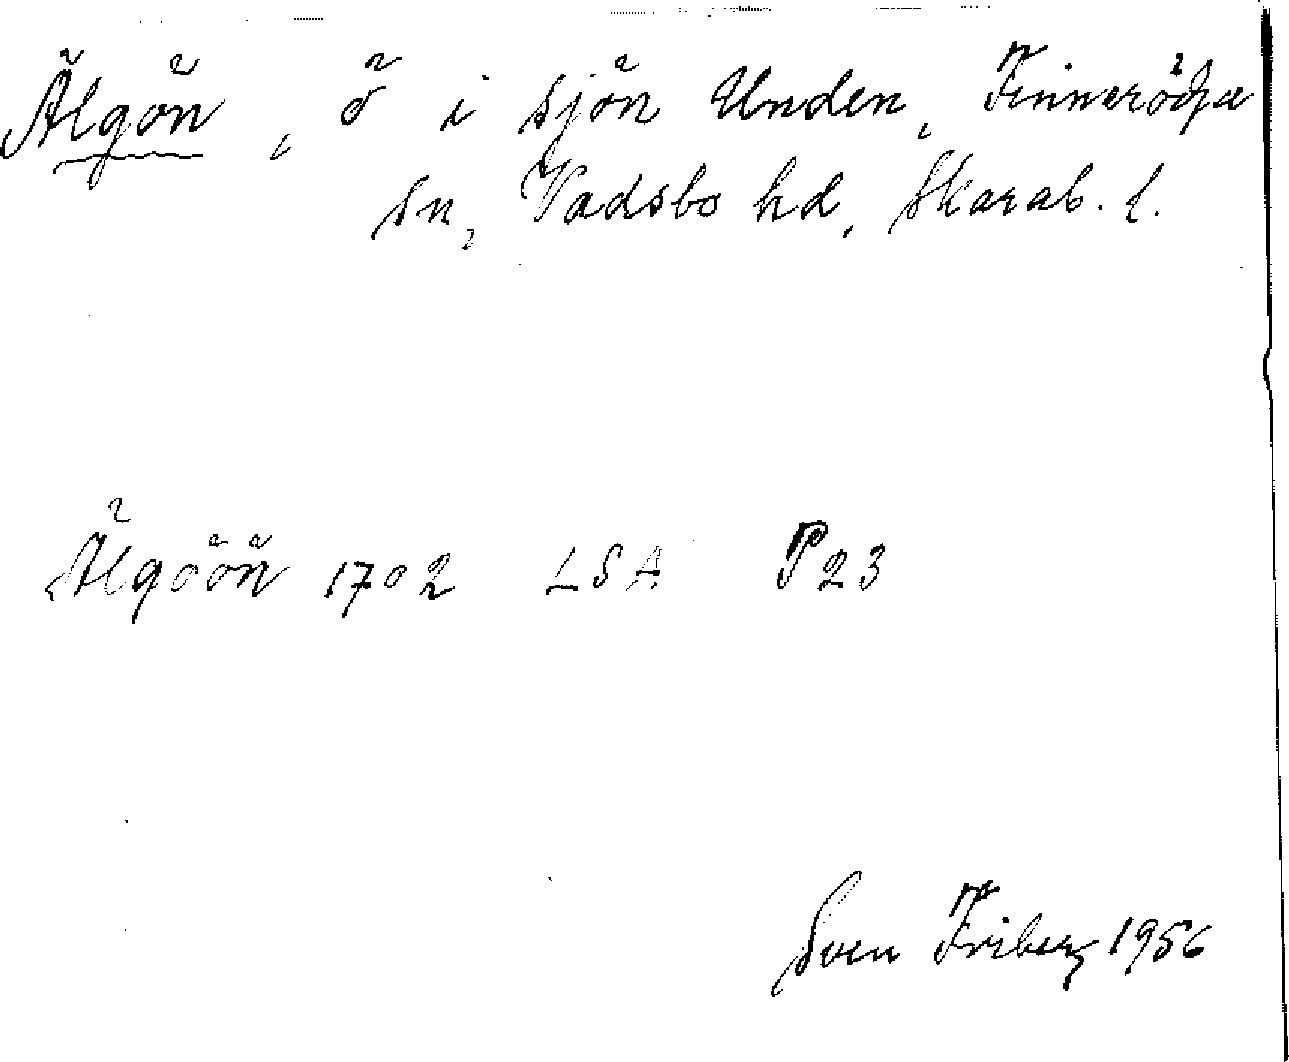 Älgön, ö i sjön Unden, Finneröja
sn, Vadsbo hd, Skarab. l.
Älgöön 1702 LSA P23
Sven Friberg 1956